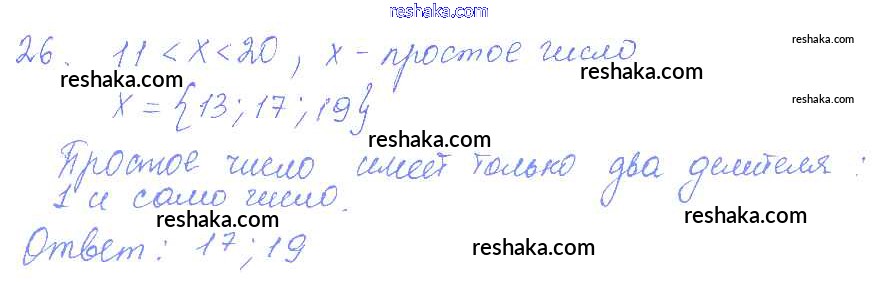 reshaka.com
26. 11 < x < 20, x - простое число
reshaka.com
reshaka.com
reshaka.com
x = {13; 17; 19}
reshaka.com
reshaka.com
Простое число имеет только два делителя:
1 и само число.
reshaka.com
reshaka.com
Ответ: 17; 19
reshaka.com